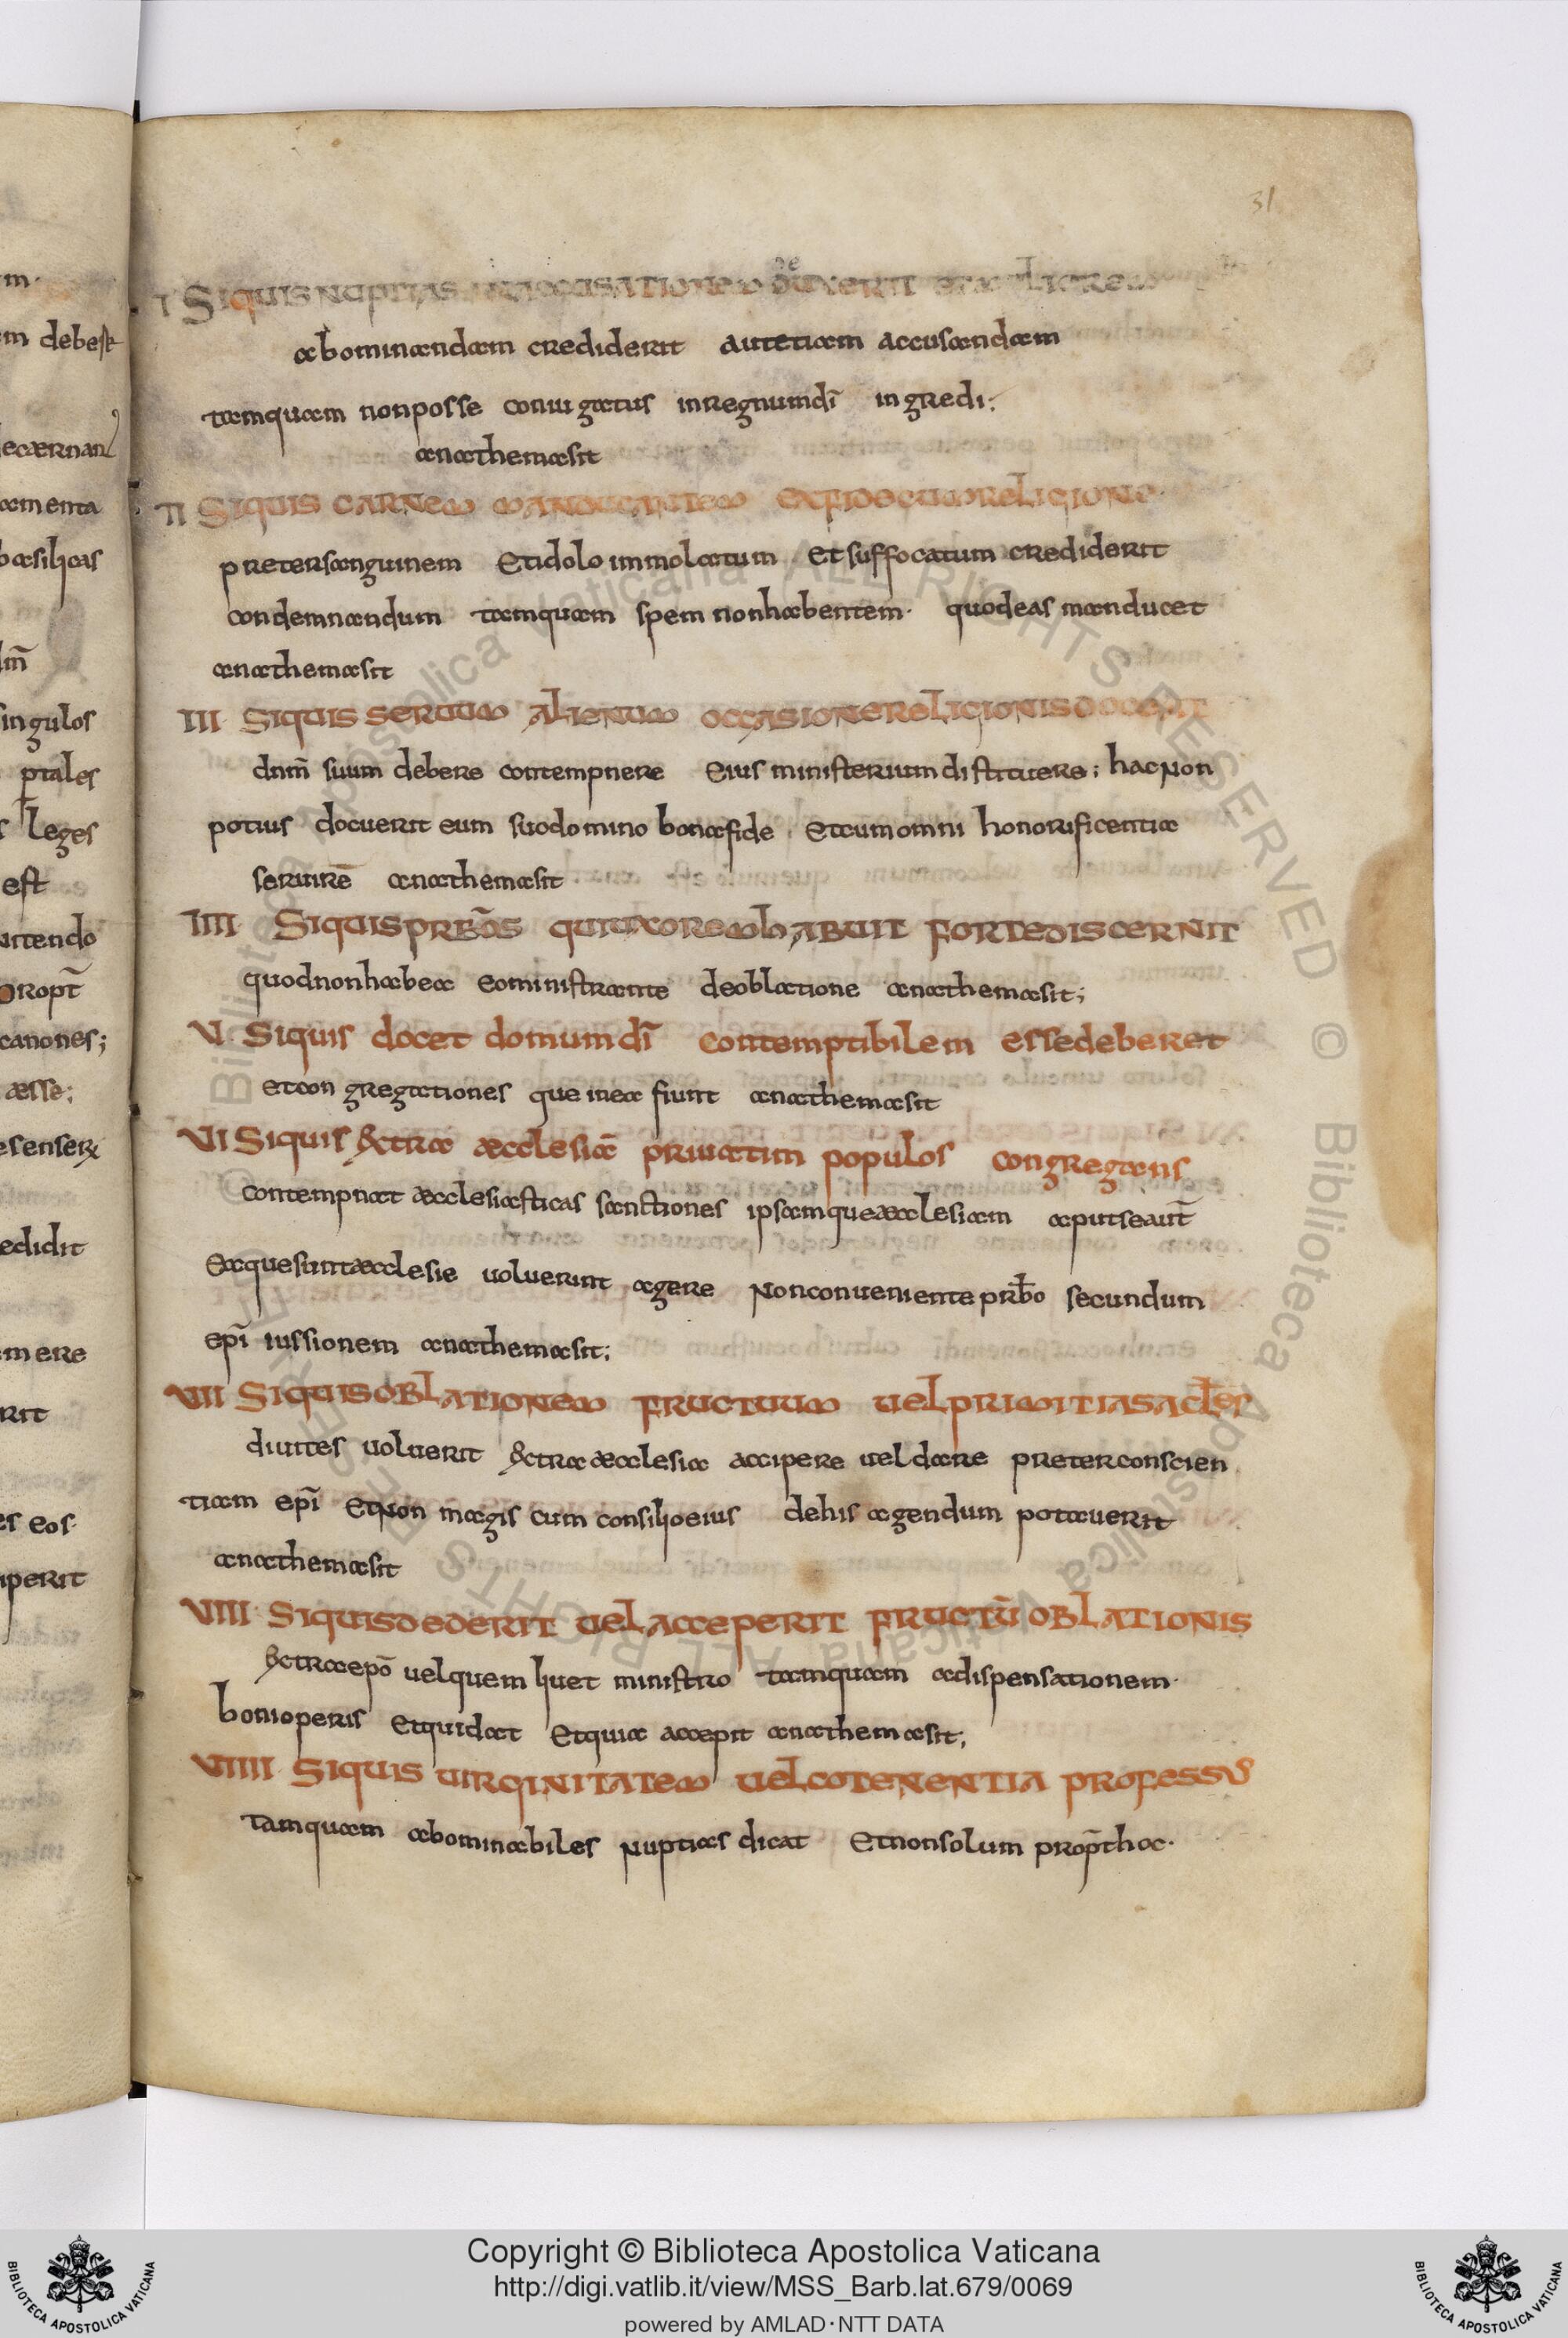 31
I Siquis nuptias in accusationem duxerit et mulierem
abominandam crediderit aut etiam accusandam
tamquam non posse coniugatus in regnum dī ingredi;
anathema sit
II Siquis carnem manducantem ex fide cum religione
preter sanguinem Et idolo immolatum Et suffocatum crediderit
condemnandum tamquam spem non habentem· quod eas manducet
anathema sit
III Siquis seruum alienum occasione religionis doceat
dnm̄ suum debere contempnere Eius ministerium distituere; hac Non
potius docuerit eum suo domino bona fide Et cum omni honorificentia
seruirē anathema sit
IIII Siquis prb̄os qui uxorem habuit forte discernit
quod non habea eo ministrante de oblatione anathema sit;
V Siquis docet domum dī contemptibilem esse deberet
et congregationes que in ea fiunt anathema sit
VI Siquis extra æcclesiā priuatim populos congregans
contempnat æcclesiasticas sanctiones ipsamque æcclesiam aput se aut̄
Ea que sunt æcclesie uoluerint agere Non conueniente prb̄o secundum
epī iussionem anathema sit;
VII Siquis oblationem fructuum uel primitias
diuites uoluerit extra æcclesia accipere uel dare preter conscien
tiam epī Et Non magis cum consilio eius de his agendum potauerit
anathema sit
VIII Siquis dederit uel acceperit fructū oblationis
extra epō uel quem liuet ministro tamquam ad dispensationem·
boni operis Et qui dat Et quia accepit anathema sit;
VIIII Siquis uirginitatem uel cotenentia professus
Tamquam abominabiles Nuptias dicat Et non solum propt̄ hoc·
em debeat
canones;
ingulos
leges
est
æsse;
Copyright © Biblioteca Apostolica Vaticana
http://digi.vatlib.it/view/MSS_Barb.lat.679/0069
powered by AMLAD·NTT DATA
BIBLIOTECA APOSTOLICA VATICANA
BIBLIOTECA APOSTOLICA VATICANA